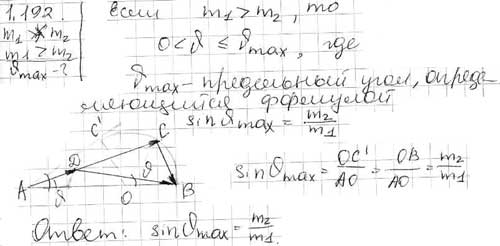 1.192. Если m1 > m2, то
m1 > m2
m1 > m2
ϑmax - ?
0 < ϑ ≤ ϑmax, где
ϑmax - предельный угол, опреде
ляющийся формулой
sinϑmax = m2/m1
C'
C
D
ϑ
A
ϑ
O
B
sinϑmax = OC'/AO = OB/AO = m2/m1
Ответ: sinϑmax = m2/m1.